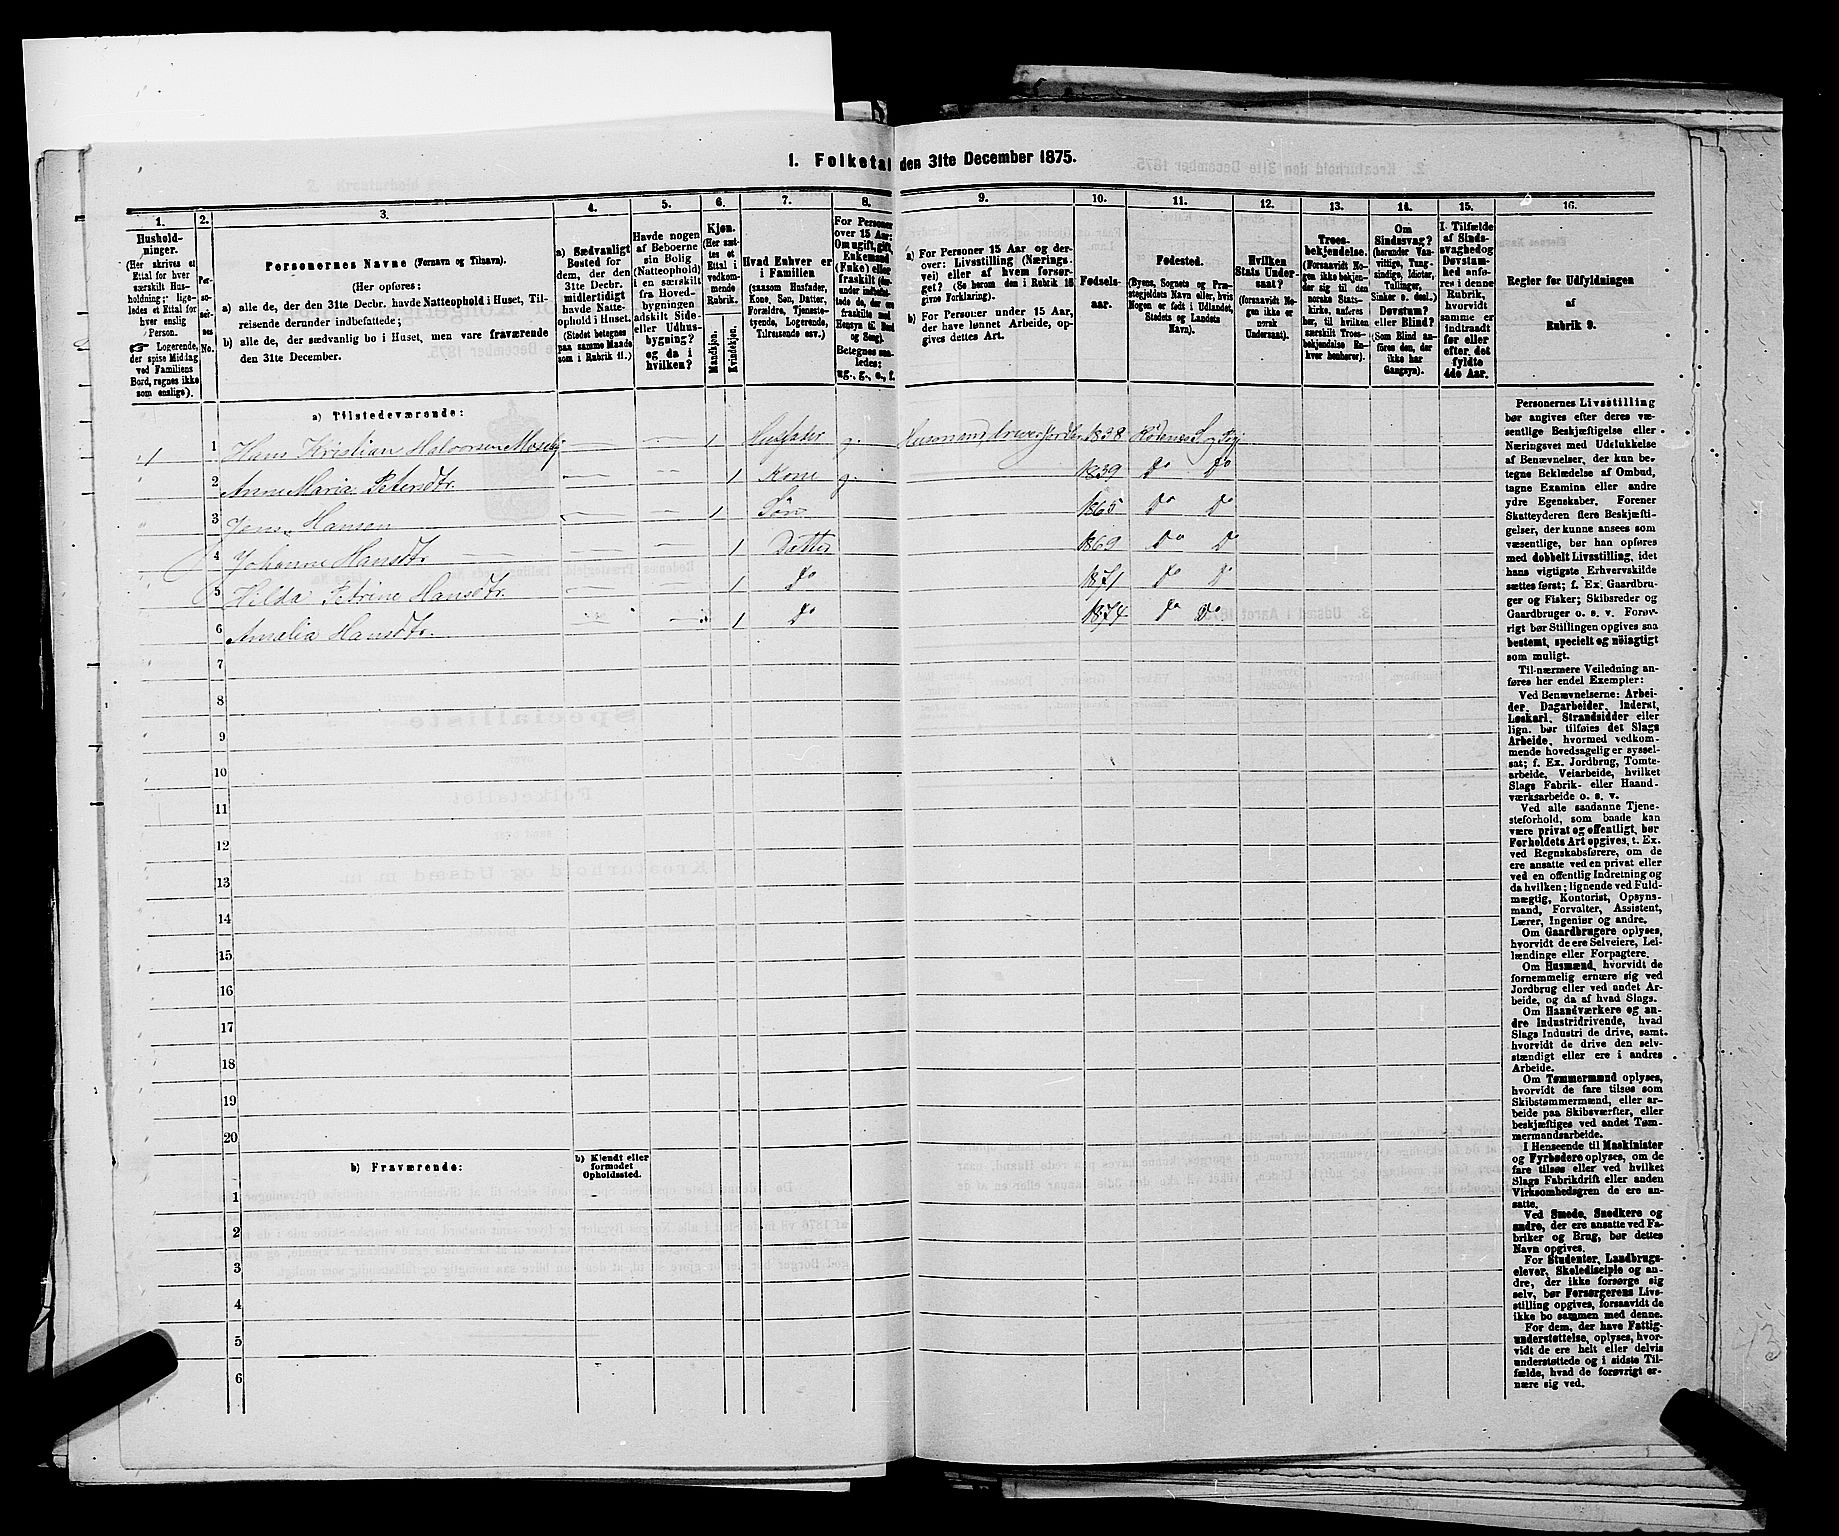 1. Folketal den 31te December 1875.
1. 2. 3. 4. 5. 6. 7. 8. 9. 10. 11. 12. 13. 14. 15. 16.
Hushold-
ninger.
(Her skrives et
Ettal for hver
særskilt Hus-
holdning; lige-
ledes et Ettal for
hver enslig
Person.
☞ Logerende,
der spise Middag
ved Familiens
Bord, regnes ikke
som enslige).
Per-
so-
ner-
nes
No.
Personernes Navne (Fornavn og Tilnavn).
(Her opføres:
a) alle de, der den 31te Decbr. havde Natteophold i Huset, Til-
reisende derunder indbefattede;
b) alle de, der sædvanlig bo i Huset, men vare fraværende
den 31te December.
a) Sædvanligt
Bosted for
dem, der den
31te Decbr.
midlertidigt
havde Natte-
ophold i Huset.
(Stedet betegnes
paa samme Maade
som i Rubrik 11.)
Havde nogen
af Beboerne
sin Bolig
(Natteophold)
i en særskilt
fra Hoved-
bygningen
adskilt Side-
eller Udhus-
bygning?
og da i
hvilken?
Kjøn.
(Her sæt-
tes et
Ettal i
vedkom-
mende
Rubrik.
Mandkjøn.
Kvindekjøn.
Hvad Enhver er
i Familien
(saasom Husfader,
Kone, Søn, Datter,
Forældre, Tjeneste-
tyende, Logerende,
Tilreisende osv.)
For Personer
over 15 Aar:
Om ugift, gift,
Enkemand
(Enke) eller
fraskilt (her-
under indbefat-
tede de, der ere
fraskilte med
Hensyn til Bord
og Seng).
Betegnes saa-
ledes:
ug., g., e., f.
a) For Personer 15 Aar og der-
over: Livsstilling (Nærings-
vei) eller af hvem forsør-
get? (Se herom den i Rubrik 16
givne Forklaring).
b) For Personer under 15 Aar,
der have lønnet Arbeide, op-
gives dettes Art.
Fødsels-
aar.
Fødested.
(Byens, Sognets og Præ-
stegjeldets Navn eller, hvis
Nogen er født i Udlandet,
Stedets og Landets
Navn).
Hvilken
Stats Under-
saat?
(forsaavidt No-
gen ikke er
norsk
Undersaat).
Troes-
bekjendelse.
(Forsaavidt No-
gen ikke bekjen-
der sig til den
norske Stats-
kirke, anføres
her, til hvilken
særskilt Troes-
bekjendelse En-
hver henhører).
Om
Sindssvag?
(herunder Van-
vittige, Tung-
sindige, Idioter,
Tullinger,
Sinker o. desl.)
Døvstum?
eller Blind?
(Som Blind an-
føres den, der
ikke har
Gangsyn).
I. Tilfælde
af Sinds-
svaghed og
Døvstum-
hed anfø-
res i denne
Rubrik,
hvorvidt
samme er
indtraadt
før eller
efter, det
fyldte
4de Aar.
Regler for Udfyldningen
af
Rubrik 9.
a) Tilstedeværende:
1 1 Hans Kristian Halvorsen Moseby — — 1 Husfader g. Husmand bruger Jorden 1838 Rødenes S og Pgj
" 2 Anne Maria Petersdtr. — — 1 Kone g. 1839 Do Do
" 3 Jens Hansen — — 1 Søn 1865 Do Do
4 Johanne Hansdtr. — — 1 Datter 1869 Do Do
5 Hilda Petrine Hansdtr. — — 1 Do 1871 Do Do
6 Amelia Hansdtr. 1 Do 1874 Do Do
7
8
9
10
11
12
13
14
15
16
17
18
19
20
b) Fraværende:
b) Kjendt eller
formodet
Opholdssted.
1
2
3
4
5
6
Personernes Livsstilling
bør angives efter deres væ-
sentlige Beskjæftigelse eller
Næringsvei med Udelukkelse
af Benævnelser, der kun be-
tegne Beklædelse af Ombud,
tagne Examina eller andre
ydre Egenskaber. Forener
Skatteyderen flere Beskjæfti-
gelser, der kunne ansees som
væsentlige, bør han opføres
med dobbelt Livsstilling, idet
hans vigtigste Erhvervskilde
sættes først; f. Ex. Gaardbru-
ger og Fisker; Skibsreder og
Gaardbruger o. s. v. Forøv-
rigt bør Stillingen opgives saa
bestemt, specielt og nøiagtigt
som muligt.
Til nærmere Veiledning an-
føres her endel Exempler:
Ved Benævnelserne: Arbei-
der, Dagarbeider, Inderst,
Løskarl, Strandsidder eller
lign. bør tilføies det Slags
Arbeide, hvormed vedkom-
mende hovedsagelig er syssel-
sat; f. Ex. Jordbrug, Tomte-
arbeide, Veiarbeide, hvilket
Slags Fabrik- eller Haand-
værksarbeide o. s. v.
Ved alle saadanne Tjene-
steforhold, som baade kan
være privat og offentligt, bør
Forholdets Art opgives, t. Ex.
ved Regnskabsførere, om de
ere ansatte ved en privat eller
ved en offentlig Indretning og
da hvilken; lignende ved Fuld-
mægtig, Kontorist, Opsyns-
mand, Forvalter, Assistent,
Lærer, Ingeniør og andre.
Om Gaardbrugere oplyses,
hvorvidt de ere Selveiere, Lei-
lændinge eller Forpagtere.
Om Husmænd, hvorvidt de
fornemmelig ernære sig ved
Jordbrug eller ved andet Ar-
beide, og da af hvad Slags.
Om Haandværkere og an-
dre Industridrivende, hvad
Slags Industri de drive, samt
hvorvidt de drive den selv-
stændigt eller ere i andres
Arbeide.
Om Tømmermænd oplyses,
hvorvidt de fare tilsøs som
Skibstømmermænd, eller ar-
beide paa Skibsværfter, eller
beskjæftiges ved andet Tøm-
mermandsarbeide.
I Henseende til Maskinister
og Fyrbødere oplyses, om de
fare tilsøs eller ved hvilket
Slags Fabrikdrift eller anden
Virksomhedsgren de ere an-
satte.
Ved Smede, Snedkere og
andre, der ere ansatte ved Fa-
briker og Brug, bør dettes
Navn opgives.
For Studenter, Landbrugs-
elever, Skoledisciple og an-
dre, der ikke forsørge sig
selv, bør Forsørgerens Livs-
stilling opgives, forsaavidt de
ikke bo sammen med denne.
For dem, der have Fattig-
understøttelse, oplyses, hvor-
vidt de ere helt eller delvis
understøttede og i sidste Til-
fælde, hvad de forøvrigt er-
nære sig ved.